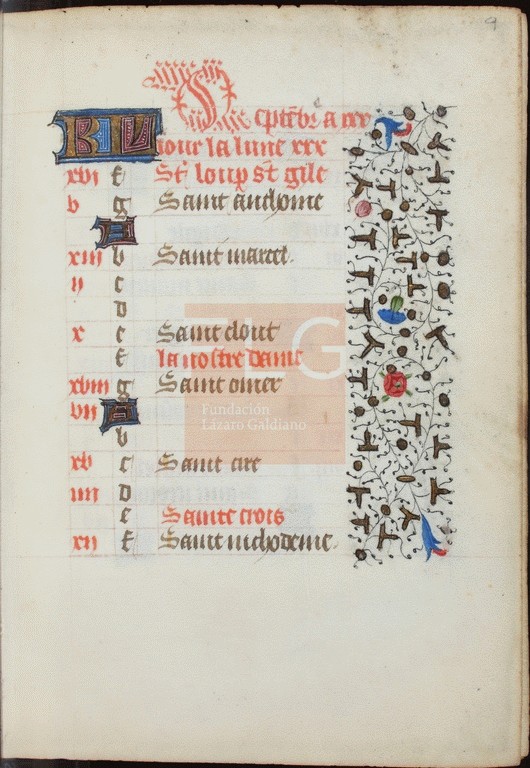 9
Septēbr a xxx
KL iour la lune xxx
xvi f St loup st gile
v g Saint anthoine
A
xiii b Saint marcel.
ii c
D
x e Saint clout
f la nostre dame
xviii g Saint omer
vii A
b
xv c Saint cire
iiii D
e Sainte crois
xii f Saint nichodeme.
FLG
Fundación
Lázaro Galdiano